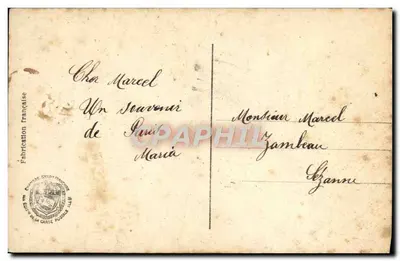 Cher Marcel
Un souvenir
de Paris
Maria
Monsieur Marcel
Zambeau
Sézanne
Fabrication française
CARTE POSTALE
CPAPHIL